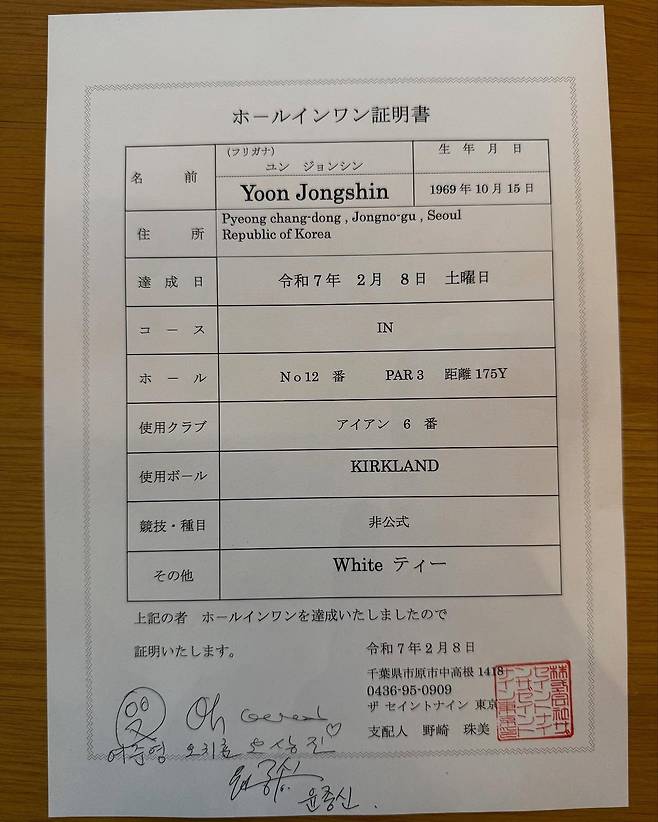 ホールインワン証明書
名 前
(フリガナ)
ユン ジョンシン
Yoon Jongshin
生 年 月 日
1969年10月15日
住 所
Pyeong chang-dong , Jongno-gu , Seoul
Republic of Korea
達 成 日
令和7年 2月 8日 土曜日
コ ー ス
IN
ホ ー ル
No12 番 PAR 3 距離 175Y
使用クラブ
アイアン 6 番
使用ボール
KIRKLAND
競技・種目
非公式
その他
White ティー
上記の者 ホールインワンを達成いたしましたので
証明いたします。
令和7年2月8日
千葉県市原市中高根 1418
0436-95-0909
ザ セイントナイン 東京
支配人 野崎 珠美
오지훈 오상진
윤종신 .